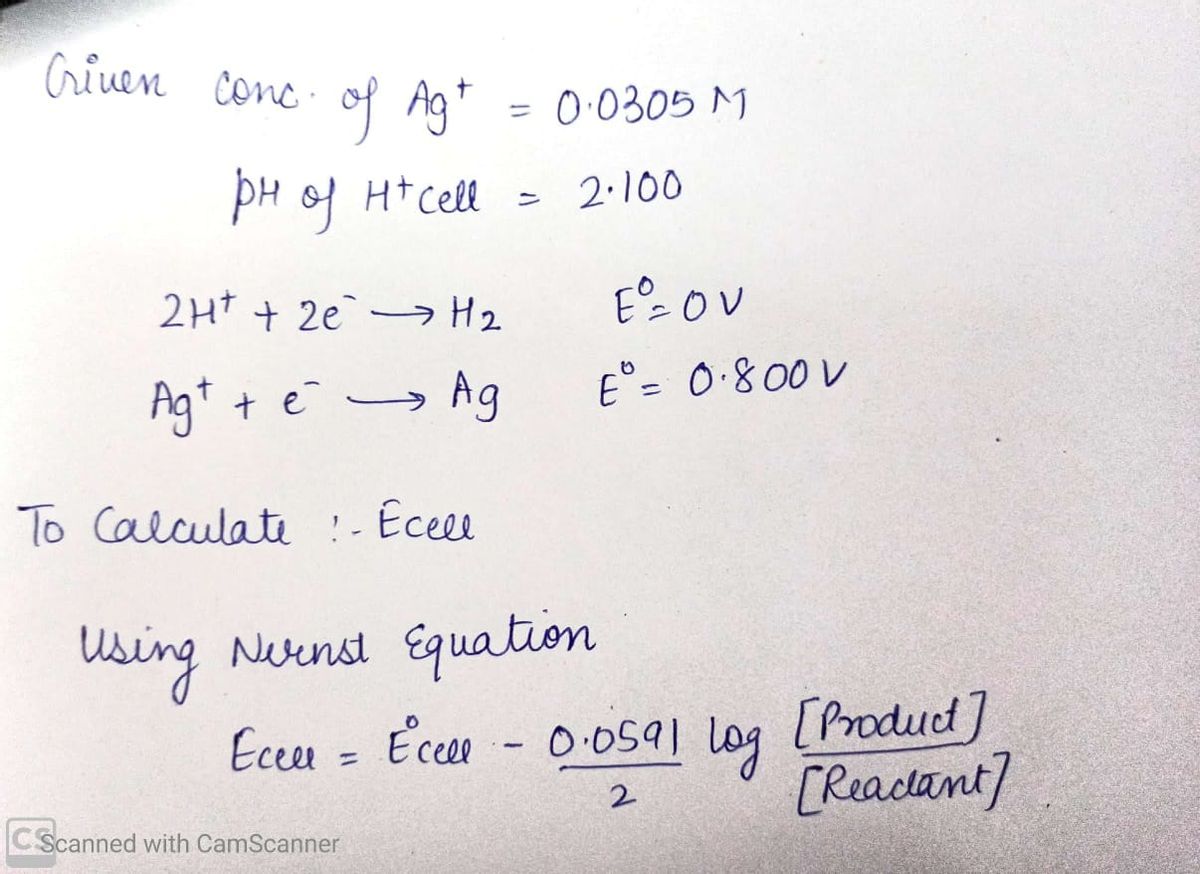 Given conc. of Ag⁺ = 0.0305 M
pH of H⁺ cell = 2.100
2H⁺ + 2e⁻ → H₂ E° = 0 V
Ag⁺ + e⁻ → Ag E° = 0.800 V
To Calculate :- Ecell
Using Nernst Equation
Ecell = E°cell - 0.0591/2 log [Product]/[Reactant]
CS Scanned with CamScanner